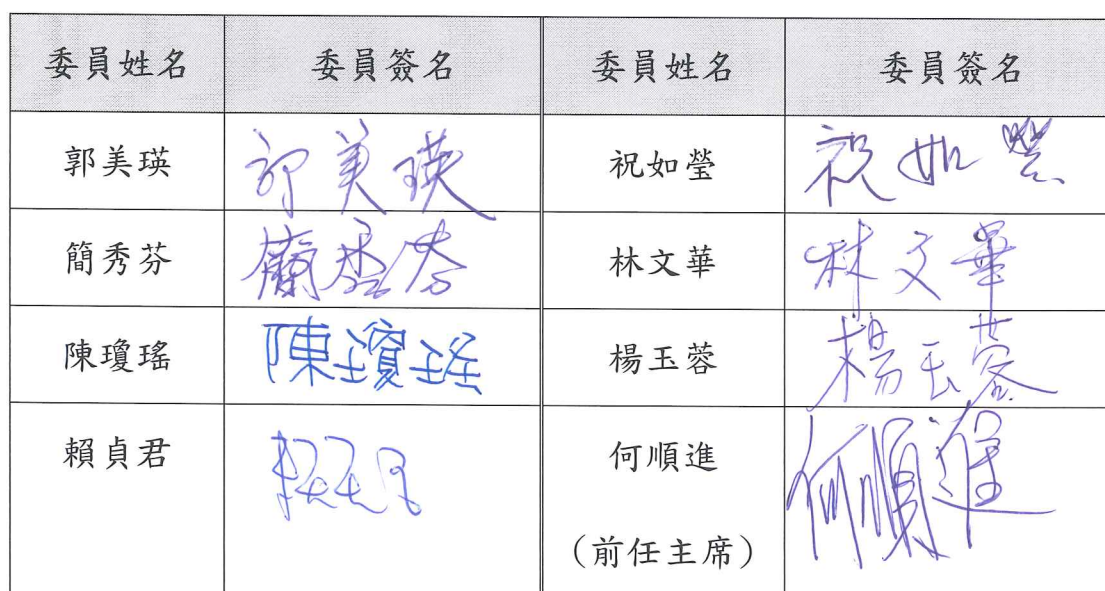 委員姓名 委員簽名 委員姓名 委員簽名
郭美瑛 郭美瑛 祝如瑩 祝如瑩
簡秀芬 簡秀芬 林文華 林文華
陳瓊瑤 陳瓊瑤 楊玉蓉 楊玉蓉
賴貞君 何順進 何順進
(前任主席)